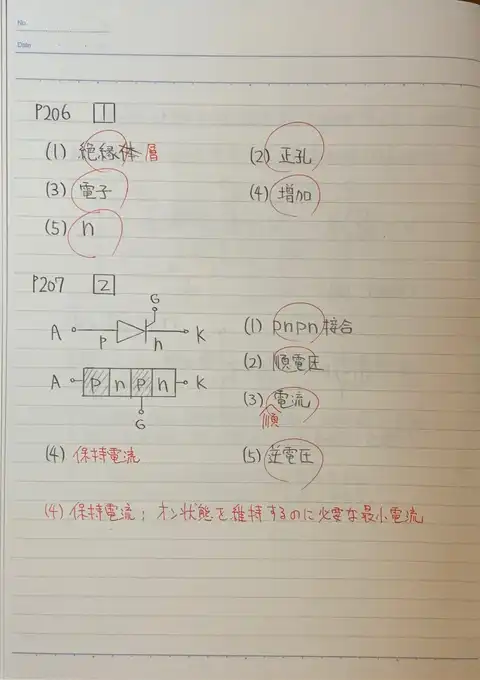 No.
Date
P206 1
(1) 絶縁体 層 (2) 正孔
(3) 電子 (4) 増加
(5) n
P207 2
G
A p n K (1) pnpn接合
(2) 順電圧
A p n p n K (3) 電流
G 順
(4) 保持電流 (5) 逆電圧
(4) 保持電流; オン状態を維持するのに必要な最小電流